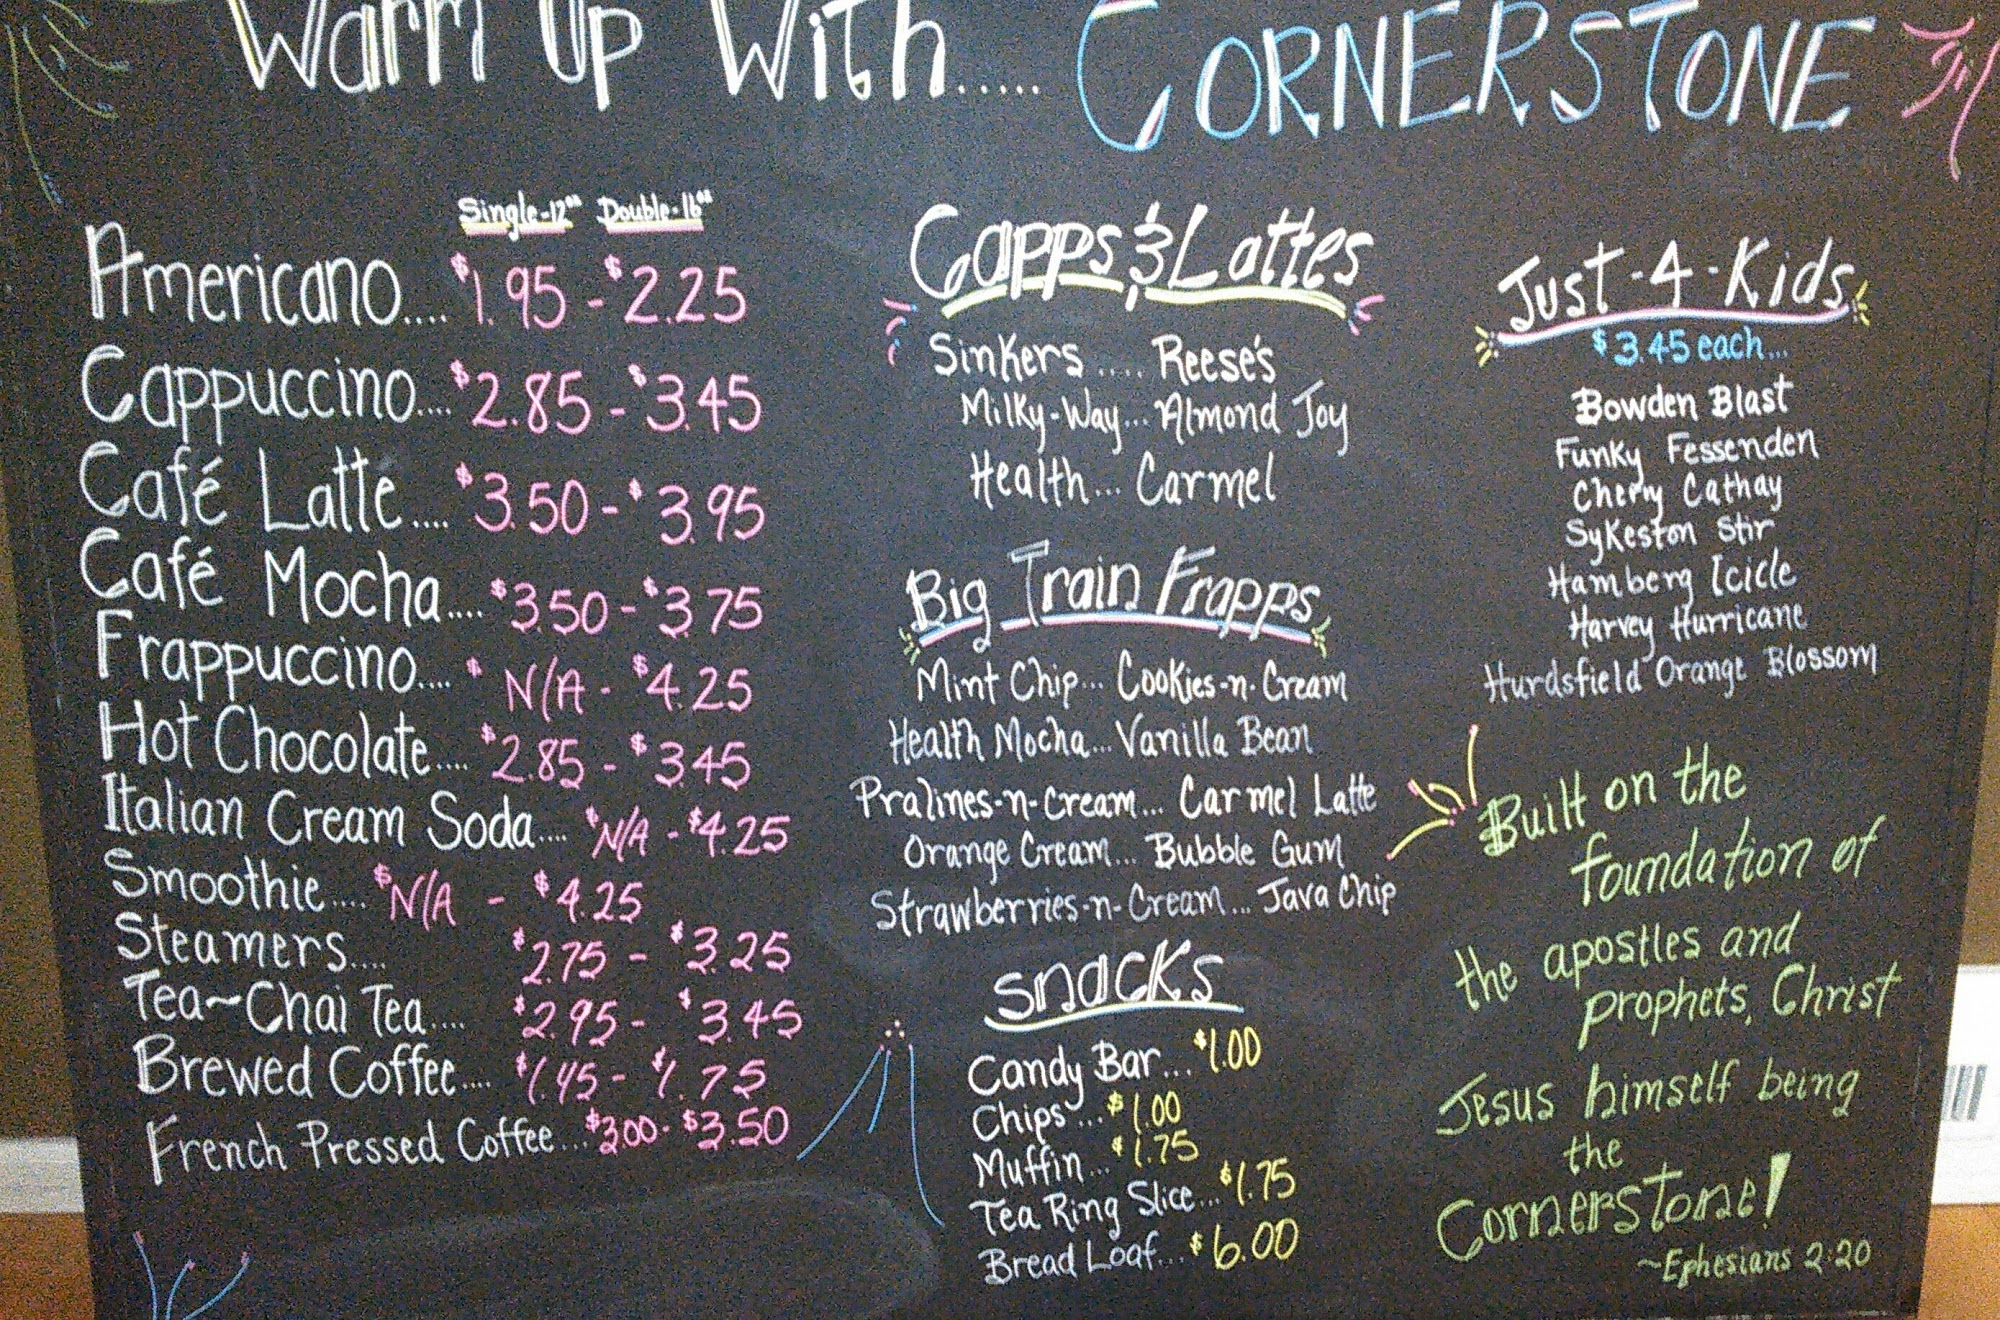 Warm Up With..... CORNERSTONE
Single-12oz Double-16oz
Americano.... $1.95 - $2.25
Cappuccino.... $2.85 - $3.45
Café Latté.... $3.50 - $3.95
Café Mocha.... $3.50 - $3.75
Frappuccino.... $N/A - $4.25
Hot Chocolate.... $2.85 - $3.45
Italian Cream Soda.... $N/A - $4.25
Smoothie.... $N/A - $4.25
Steamers.... $2.75 - $3.25
Tea~Chai Tea.... $2.95 - $3.45
Brewed Coffee.... $1.45 - $1.75
French Pressed Coffee... $3.00 - $3.50
Capps & Lattes
Sinkers .... Reese's
Milky-Way... Almond Joy
Health... Carmel
Big Train Frapps
Mint Chip... Cookies-n-Cream
Health Mocha... Vanilla Bean
Pralines-n-Cream... Carmel Latte
Orange Cream... Bubble Gum
Strawberries-n-Cream... Java Chip
Snacks
Candy Bar... $1.00
Chips... $1.00
Muffin... $1.75
Tea Ring Slice... $1.75
Bread Loaf... $6.00
Just-4-Kids
$3.45 each...
Bowden Blast
Funky Fessenden
Cherry Cathay
Sykeston Stir
Hamberg Icicle
Harvey Hurricane
Hurdsfield Orange Blossom
Built on the
foundation of
the apostles and
prophets, Christ
Jesus himself being
the
Cornerstone!
~Ephesians 2:20